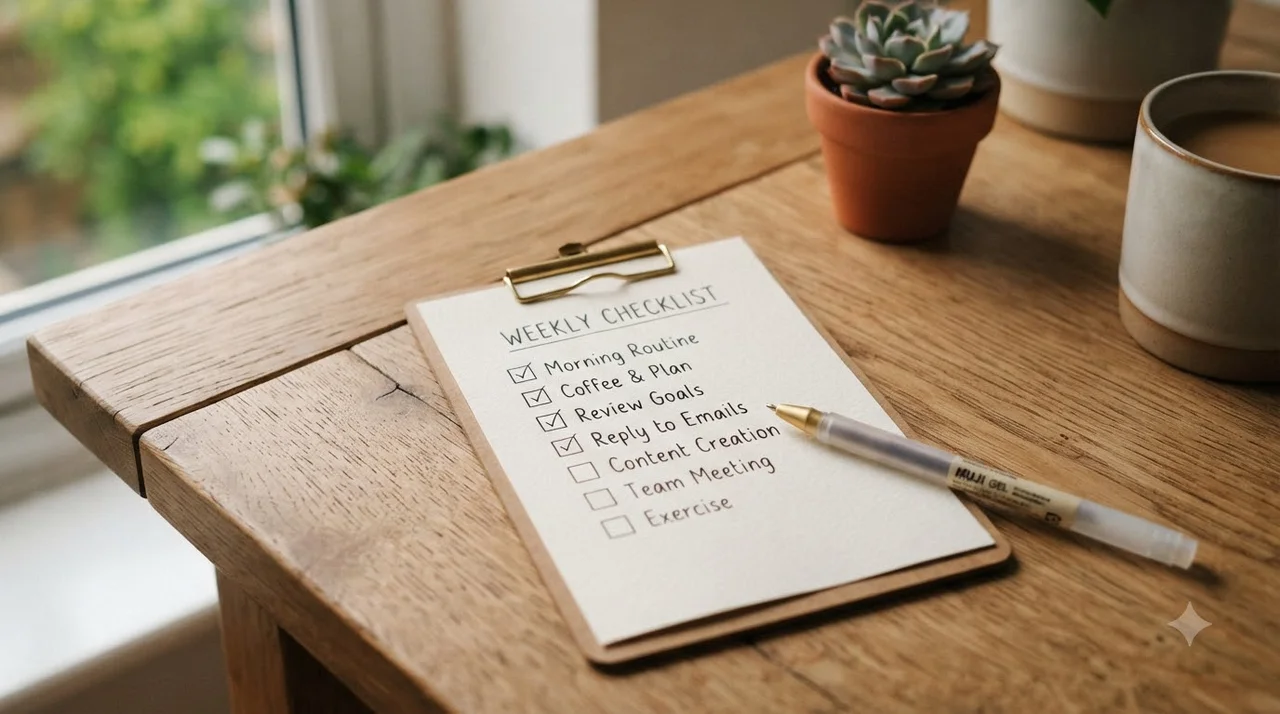 WEEKLY CHECKLIST
Morning Routine
Coffee & Plan
Review Goals
Reply to Emails
Content Creation
Team Meeting
Exercise
MUJI GEL